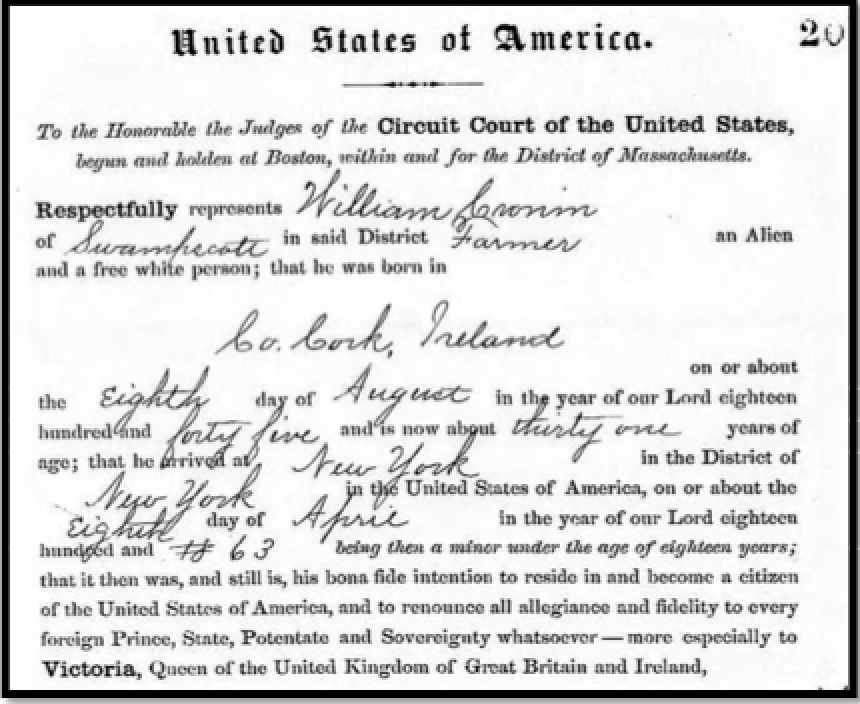 20
United States of America.
To the Honorable the Judges of the Circuit Court of the United States,
begun and holden at Boston, within and for the District of Massachusetts.
Respectfully represents William Cronin
of Swampscott in said District Farmer an Alien
and a free white person; that he was born in
Co. Cork, Ireland
on or about
the Eighth day of August in the year of our Lord eighteen
hundred and forty five and is now about thirty one years of
age; that he arrived at New York in the District of
New York in the United States of America, on or about the
Eighth day of April in the year of our Lord eighteen
hundred and 63 being then a minor under the age of eighteen years;
that it then was, and still is, his bona fide intention to reside in and become a citizen
of the United States of America, and to renounce all allegiance and fidelity to every
foreign Prince, State, Potentate and Sovereignty whatsoever — more especially to
Victoria, Queen of the United Kingdom of Great Britain and Ireland,